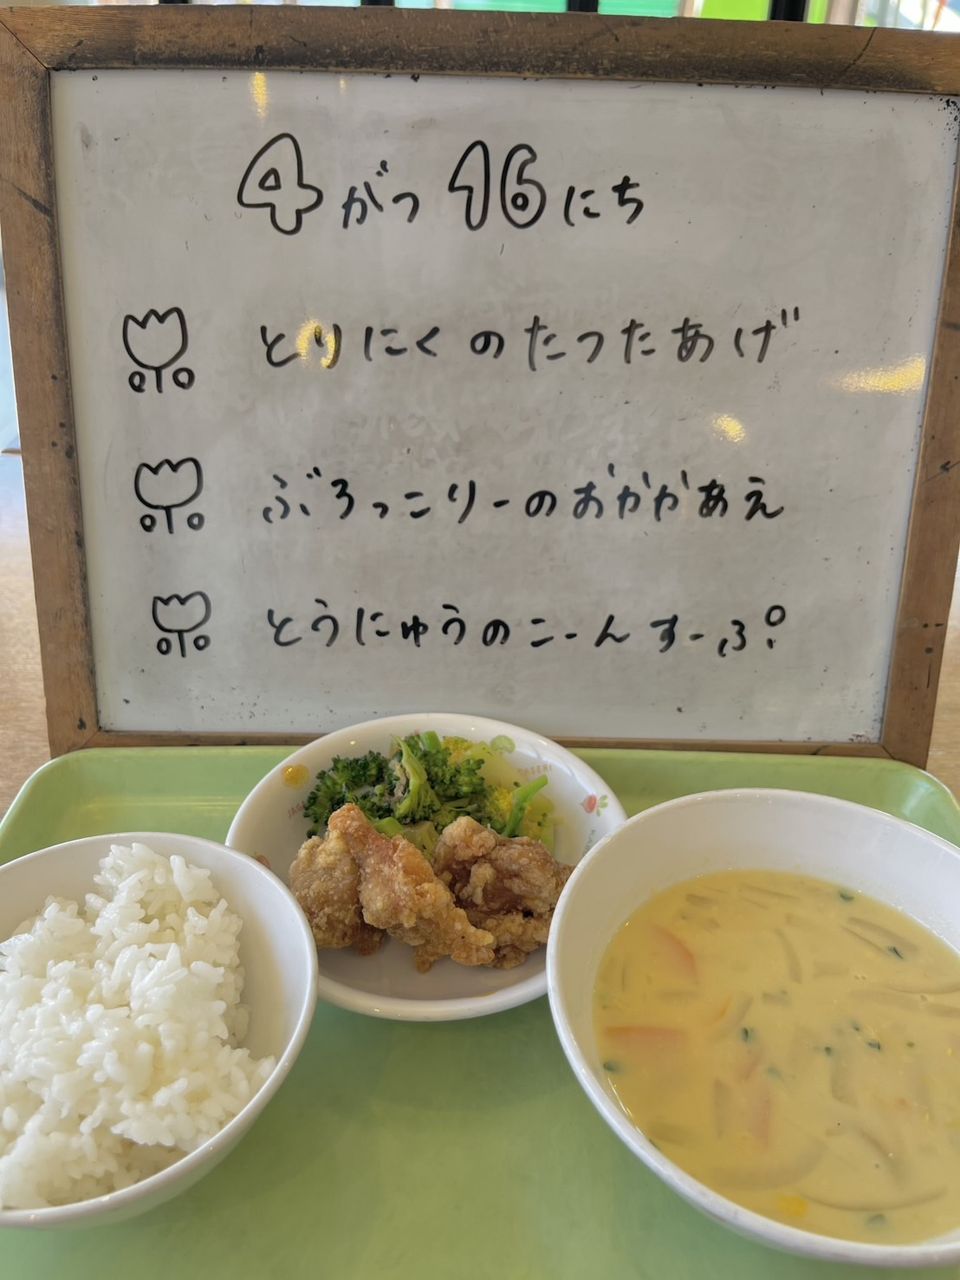 4がつ16にち
とりにくのたつたあげ
ぶろっこりーのおかかあえ
とうにゅうのこーんすーぷ